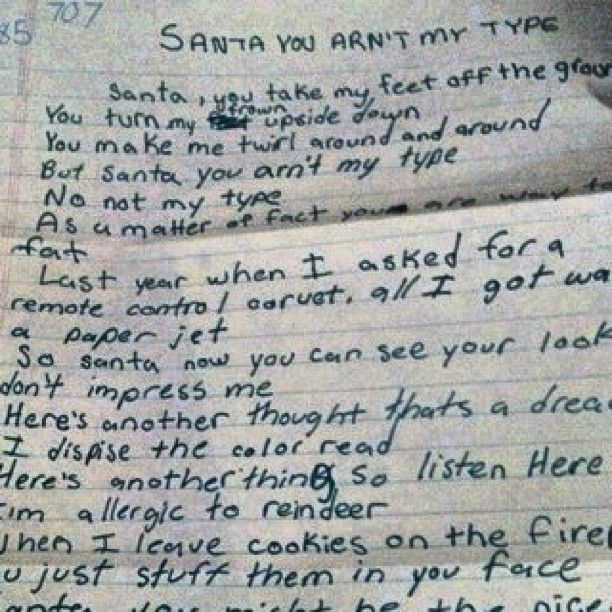 85 707
SANTA YOU ARN'T MY TYPE
Santa, you take my feet off the groun
You turn my frown upside down
You make me twirl around and around
But Santa you arn't my type
No not my type
As a matter of fact you are way to
fat
Last year when I asked for a
remote control corvet, all I got wa
a paper jet
So santa now you can see your look
don't impress me
Here's another thought thats a drea
I dispise the color read
Here's another thing so listen Here
im allergic to reindeer
When I leave cookies on the firep
u just stuff them in you face
Santa you might be the nice